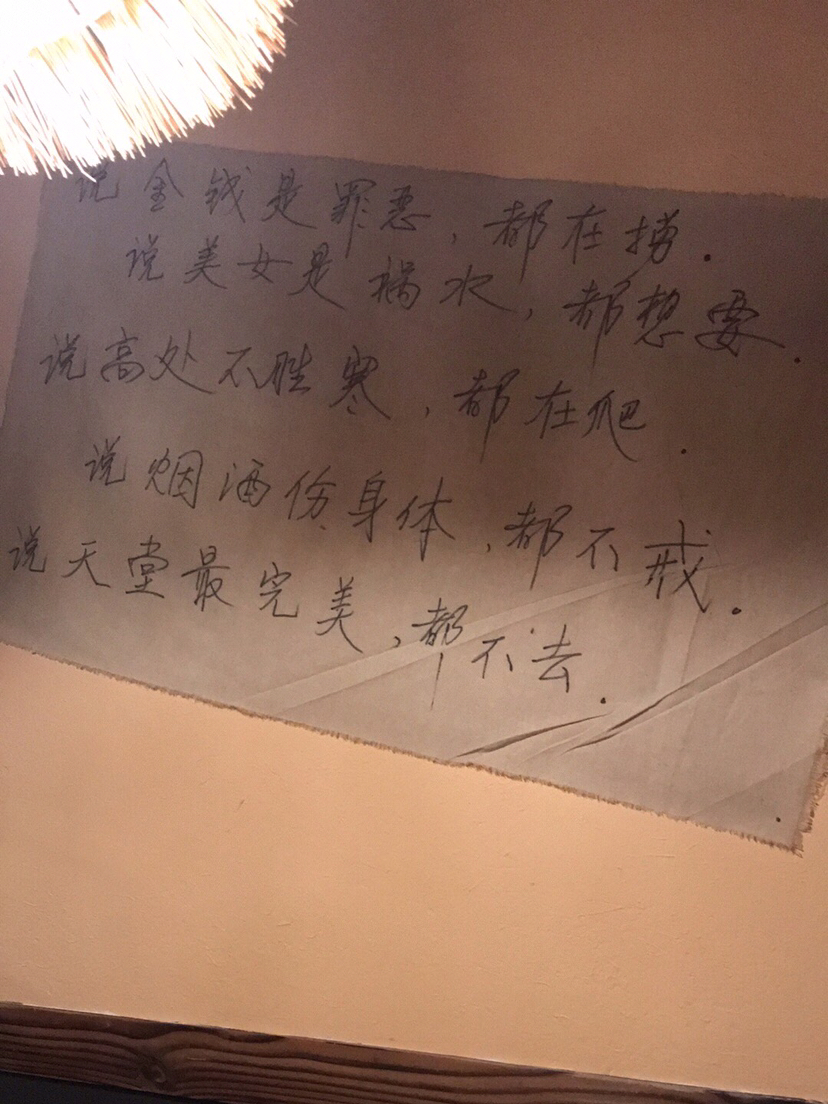 说金钱是罪恶，都在捞．
说美女是祸水，都想要．
说高处不胜寒，都在爬．
说烟酒伤身体，都不戒．
说天堂最完美，都不去．